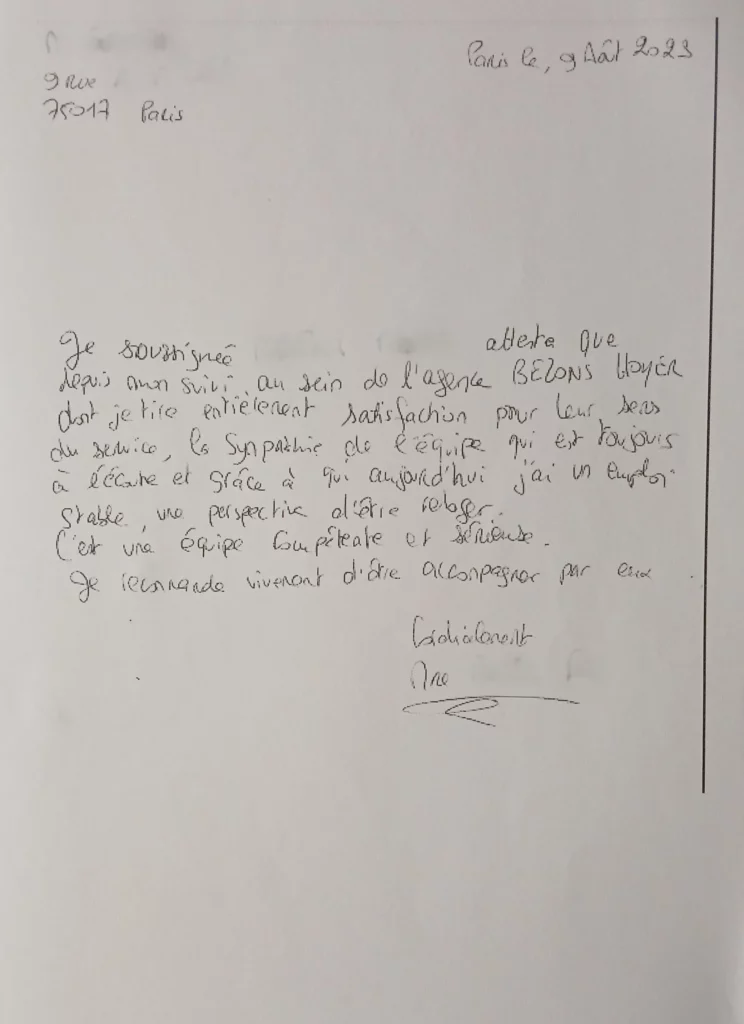 Paris le, 9 Aôt 2023
9 Rue
75017 Paris
Je soussigneé atteste que
depuis mon suivi, au sein de l'agence BEZONS HOYER
dont je tire entièrement satisfaction pour leur sens
du service, la Sympathie de l'équipe qui est toujours
à l'écoute et grâce à qui aujourd'hui j'ai un emploi
stable, une perspective d'être reloger.
C'est une équipe Compétente et sérieuse.
Je recommande vivement d'être accompagner par eux.
Cordialement
Mme